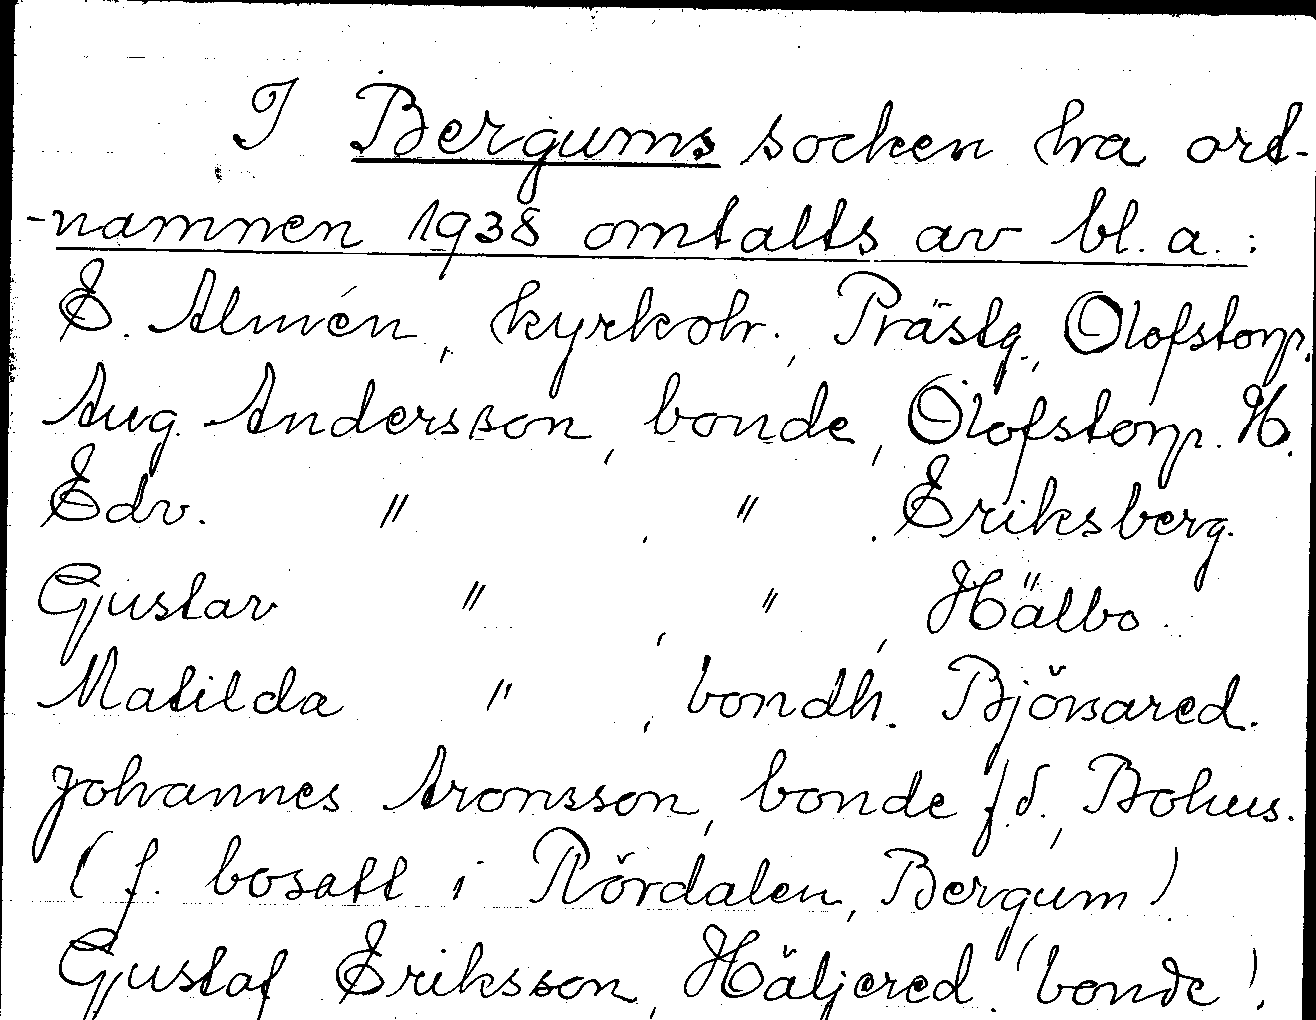 I Bergums socken ha ort-
-namnen 1938 omtalts av bl. a. :
E. Almén, kyrkoh., Prästg., Olofstorp.
Aug. Andersson, bonde, Olofstorp. H.
Edv. " , " , Eriksberg.
Gustav " , " , Hälbo.
Matilda " , bondh. Björsared.
Johannes Aronsson, bonde f.d., Bohus.
(f. bosatt i Rördalen, Bergum).
Gustaf Eriksson, Häljered (bonde).